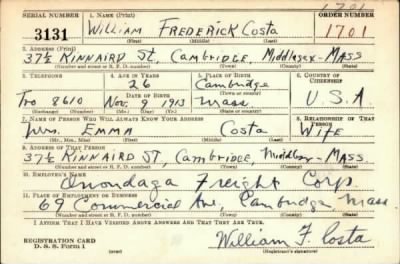 1701
SERIAL NUMBER 1. NAME (Print) ORDER NUMBER
3131 William FREDERICK Costa 1701
(First) (Middle) (Last)
2. ADDRESS (Print)
37½ KINNAIRD St, CAMBRIDGE, Middlesex-MASS
(Number and street or R. F. D. number) (Town) (County) (State)
3. TELEPHONE 4. AGE IN YEARS 5. PLACE OF BIRTH 6. COUNTRY OF CITIZENSHIP
26 Cambridge
DATE OF BIRTH (Town or county)
Tro 8610 Nov. 9 1913 Mass U.S.A
(Exchange) (Number) (Mo.) (Day) (Yr.) (State or country)
7. NAME OF PERSON WHO WILL ALWAYS KNOW YOUR ADDRESS 8. RELATIONSHIP OF THAT PERSON
Mrs. EMMA Costa WIFE
(Mr., Mrs., Miss) (First) (Middle) (Last)
9. ADDRESS OF THAT PERSON
37½ KINNAIRD ST, CAMBRIDGE, Middlesex-MASS.
(Number and street or R. F. D. number) (Town) (County) (State)
10. EMPLOYER'S NAME
Onondaga Freight Corp.
11. PLACE OF EMPLOYMENT OR BUSINESS
69 Commercial Ave, Cambridge Mass
(Number and street or R. F. D. number) (Town) (County) (State)
I AFFIRM THAT I HAVE VERIFIED ABOVE ANSWERS AND THAT THEY ARE TRUE.
REGISTRATION CARD
D. S. S. Form 1 (over) William F. Costa
(Registrant's signature)